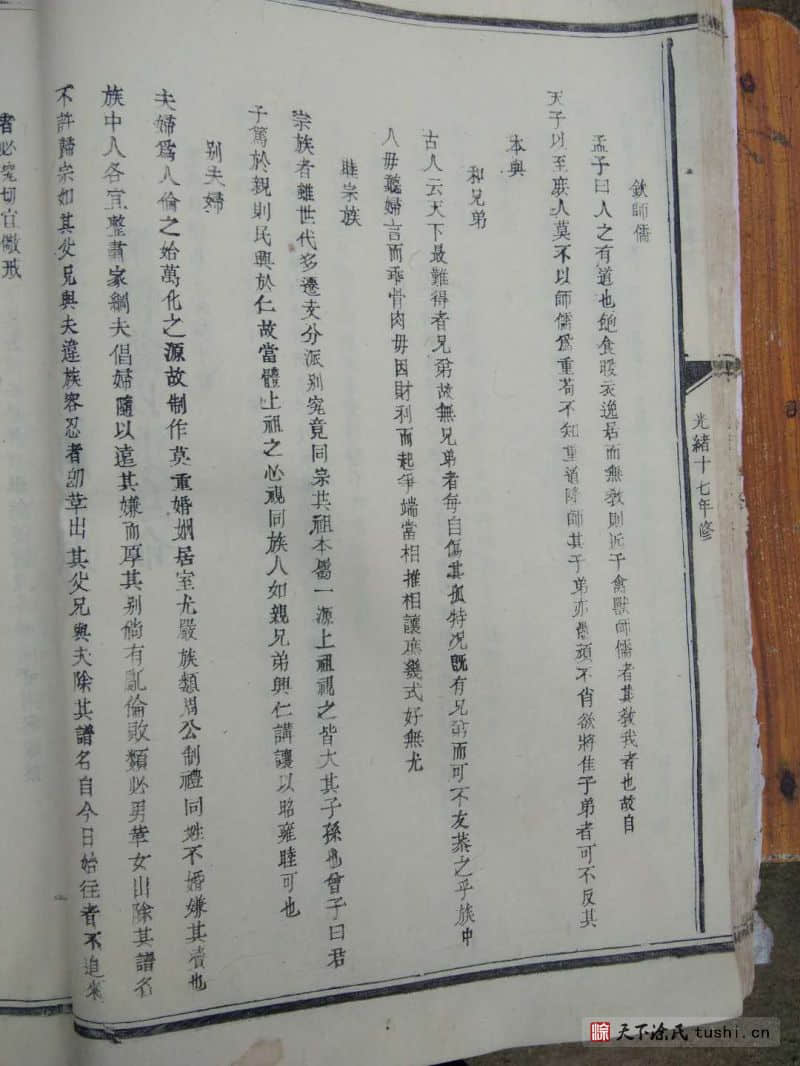 光緒十七年修
欽師儒
孟子曰人之有道也飽食暖衣逸居而無教則近于禽獸師儒者其教我者也故自
天子以至庶人莫不以師儒為重苟不知重道隆師其子弟亦愚頑不肖欲將佳子弟者可不反其
本與
和兄弟
古人云天下最難得者兄弟故無兄弟者每自傷其孤特况既有兄弟而可不友恭之乎族中
人毋聽婦言而乖骨肉毋因財利而起爭端當相推相讓庶幾式好無尤
睦宗族
宗族者雖世代多遷支分派别究竟同宗共祖本屬一源上祖視之皆大其子孫也曾子曰君
子篤於親則民興於仁故當體上祖之心視同族人如親兄弟興仁講讓以昭雍睦可也
别夫婦
夫婦為人倫之始萬化之源故制作莫重婚姻居室尤嚴族類周公制禮同姓不婚嫌其瀆也
族中人各宜整肅家綱夫倡婦隨以遠其嫌而厚其别倘有亂倫敗類必男革女出除其譜名
不許歸宗如其父兄與夫違族容忍者即革出其父兄與夫除其譜名自今日始往者不追來
者必究切宜儆戒
天下涂氏 tushi.cn